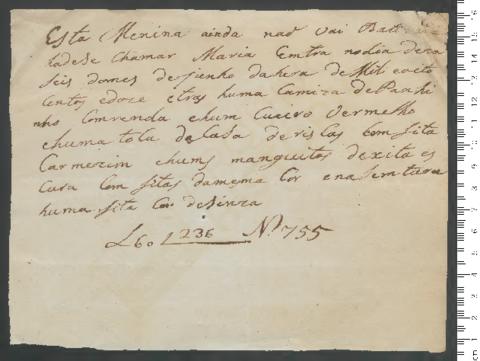 Esta Menina ainda naõ vai Bauti
zadese Chamar Maria Emtra nodia deza
seis domes dejunho dahera de Mil eoito
Centos edoze etras huma Camiza de Paani
nho Comrenda ehum Cueiro Vermelho
ehuma tola de lasa deriscas Com fita
Carmezim ehums manguitos dexita es
Cura Com fitas damema Cor ena
huma fita Cor desinza
L 60 236 Nº 755